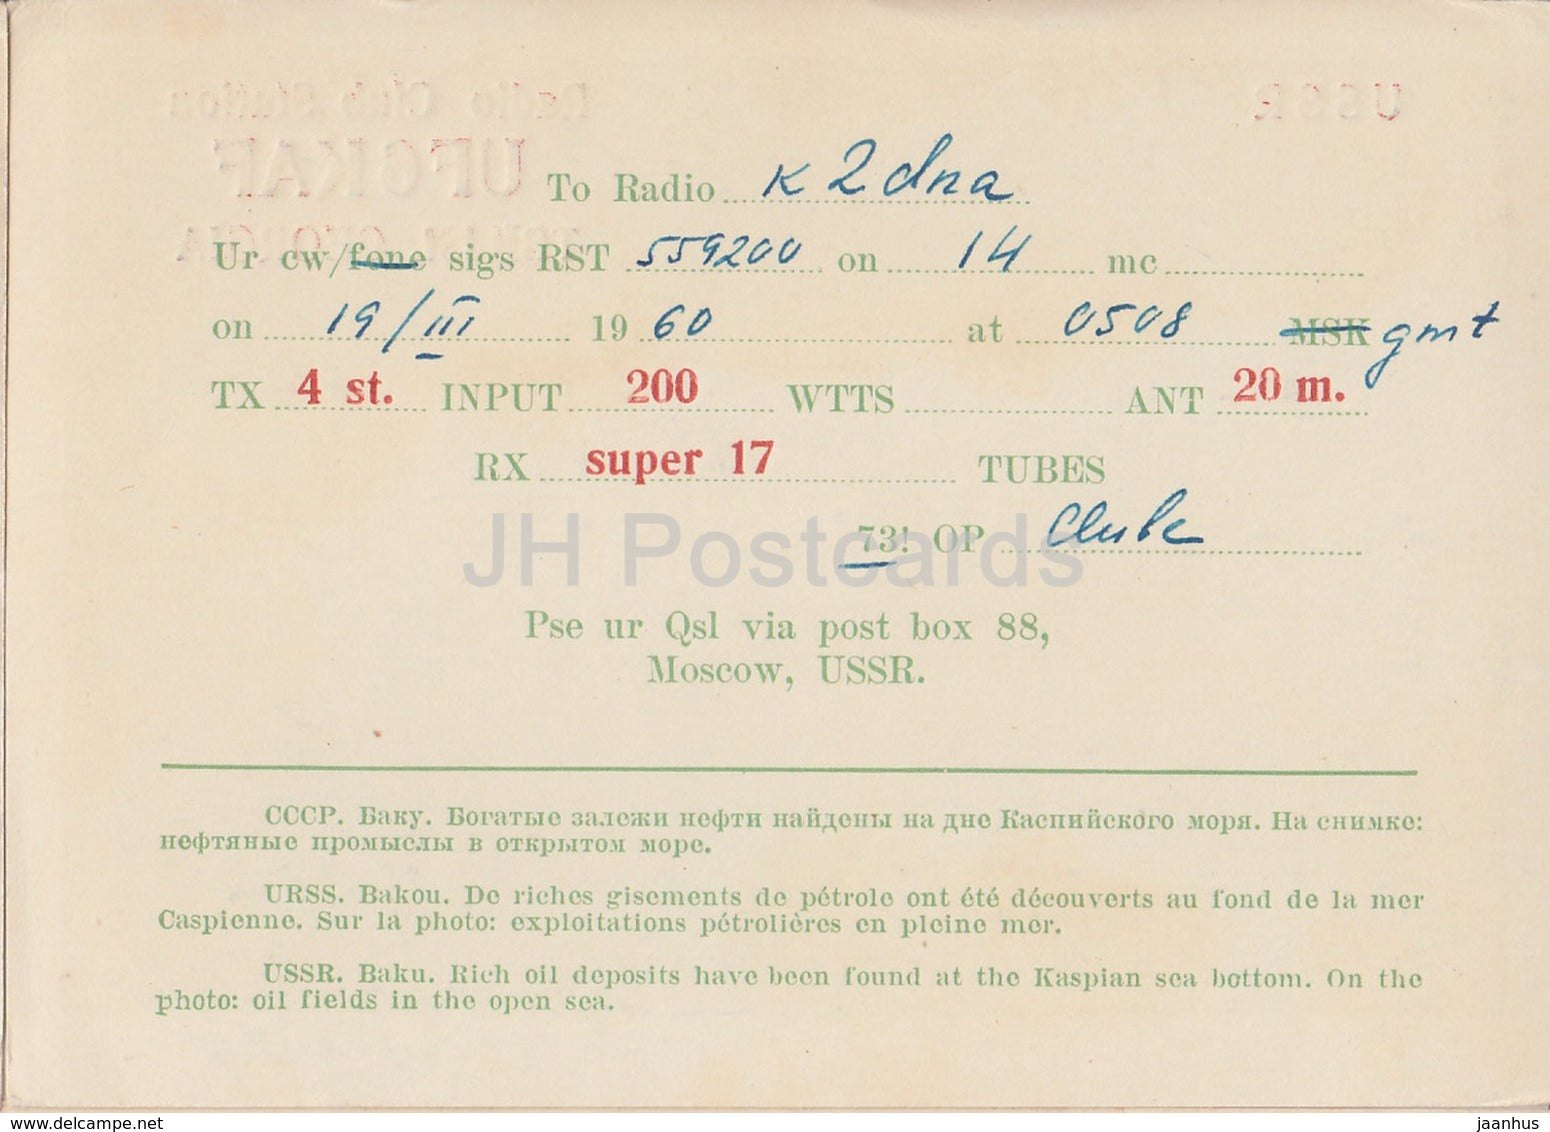 Radio Club Station USSR
UF6KAF
To Radio K2dna
Ur cw/fone sigs RST 559200 on 14 mc
on 19/III 1960 at 0508 MSK gmt
TX 4 st. INPUT 200 WTTS ANT 20 m.
RX super 17 TUBES
73! OP
JH Postcards
Pse ur Qsl via post box 88,
Moscow, USSR.
СССР. Баку. Богатые залежи нефти найдены на дне Каспийского моря. На снимке:
нефтяные промыслы в открытом море.
URSS. Bakou. De riches gisements de pétrole ont été découverts au fond de la mer
Caspienne. Sur la photo: exploitations pétrolières en pleine mer.
USSR. Baku. Rich oil deposits have been found at the Kaspian sea bottom. On the
photo: oil fields in the open sea.
www.delcampe.net jaanhus